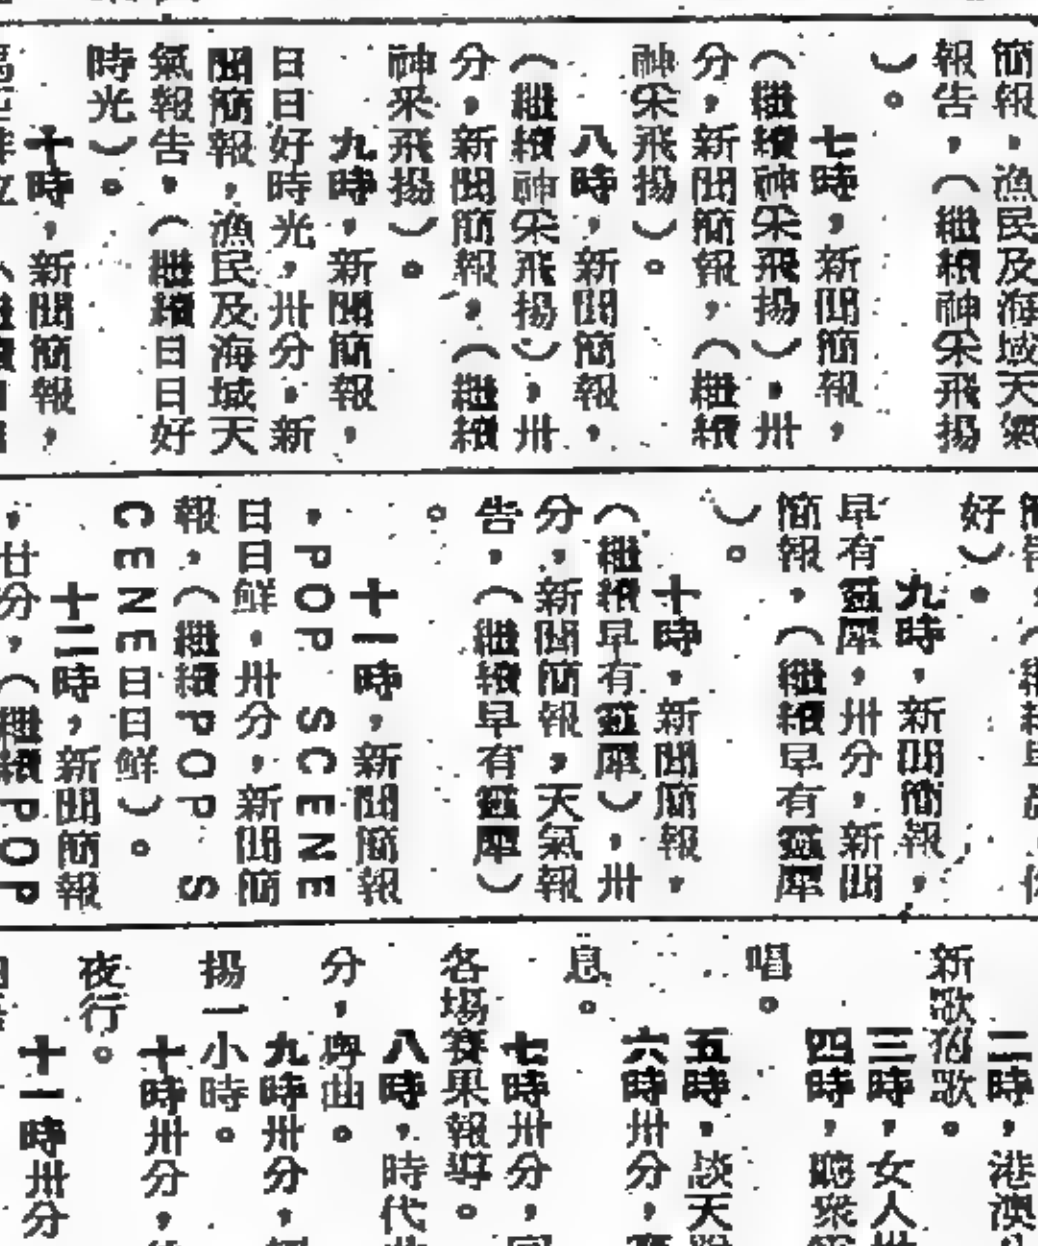 簡報，漁民及海域天氣
報告，（繼續神采飛揚
）。
七時，新聞簡報，
（繼續神采飛揚），卅
分，新聞簡報，（繼續
神采飛揚）。
八時，新聞簡報，
（繼續神采飛揚），卅
分，新聞簡報，（繼續
神采飛揚）。
九時，新聞簡報，
日日好時光，卅分，新
聞簡報，漁民及海域天
氣報告，（繼續日日好
時光）。
十時，新聞簡報，
好）。
九時，新聞簡報，
早有靈犀，卅分，新聞
簡報，（繼續早有靈犀
）。
十時，新聞簡報，
（繼續早有靈犀），卅
分，新聞簡報，天氣報
告，（繼續早有靈犀）
。
十一時，新聞簡報
，POP SCENE
日日鮮，卅分，新聞簡
報，（繼續POP S
CENE日日鮮）。
十二時，新聞簡報
，廿分，（繼續POP
二時，港澳
新歌 歌。
三時，女人世
四時，聽眾
唱。
五時，談天
六時卅分，
息。
七時卅分，
各場賽果報導。
八時，時代曲
分，粵曲。
九時卅分，
揚一小時。
十時卅分，
夜行。
十一時卅分